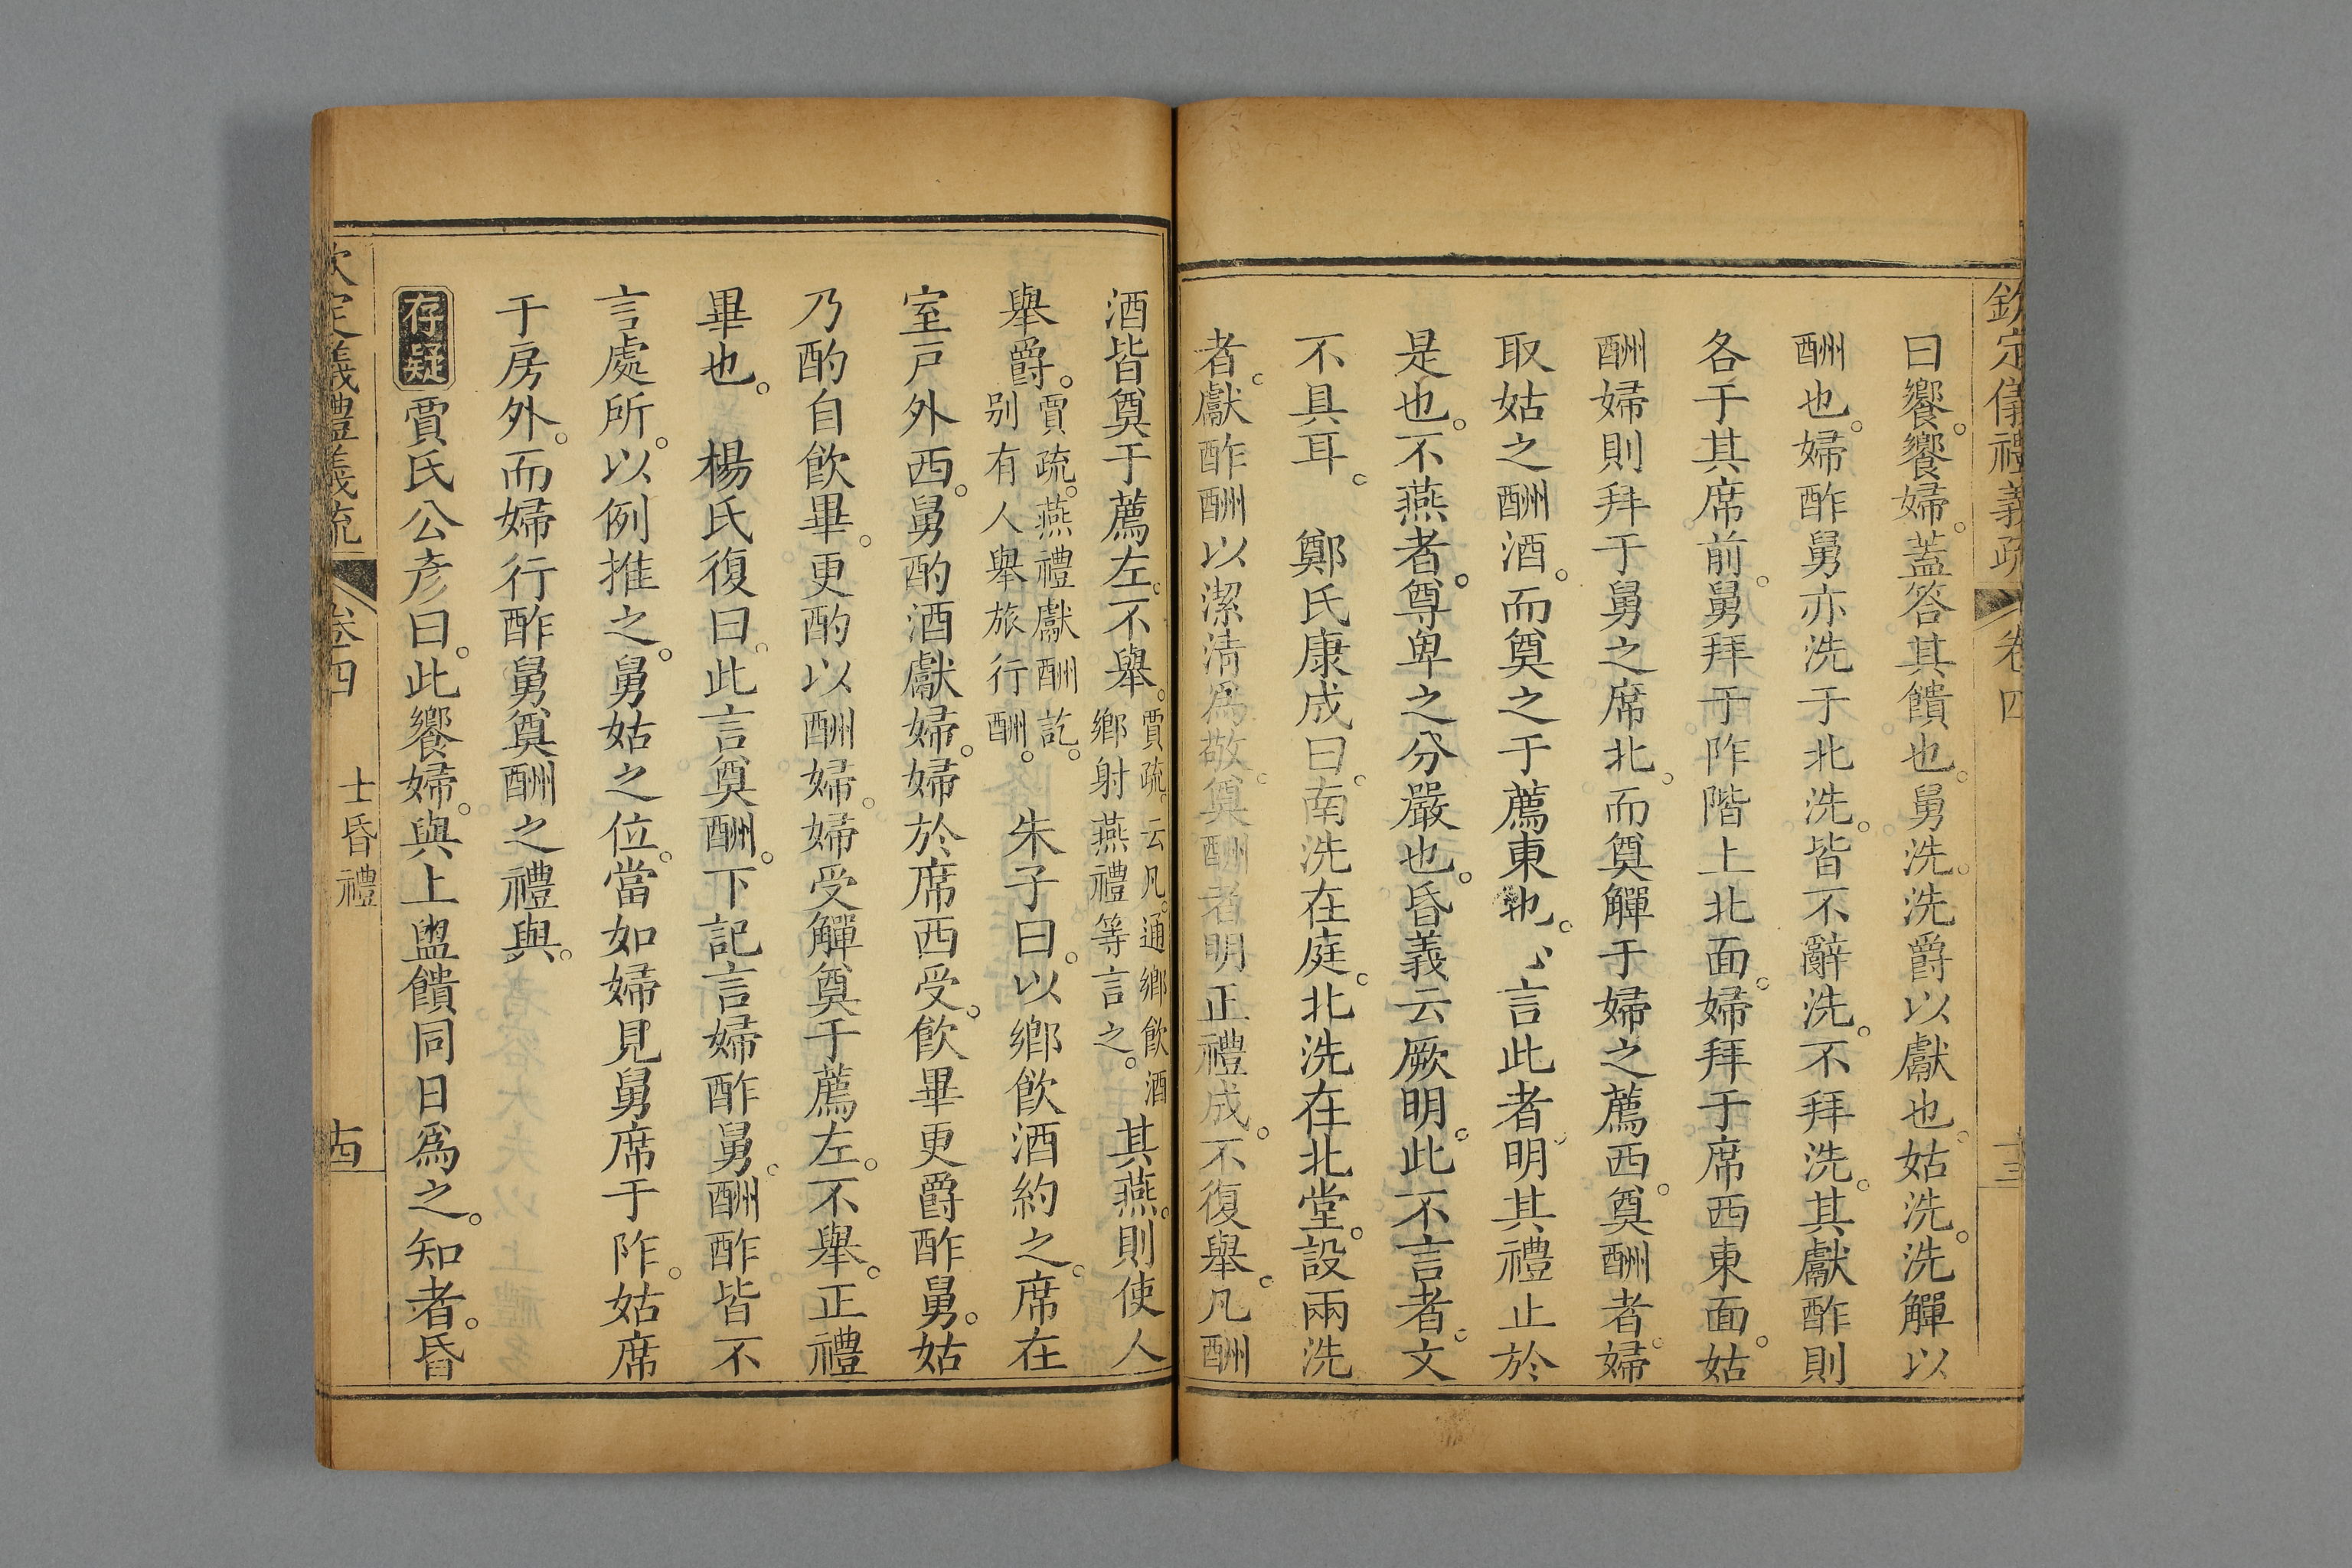 欽定儀禮義疏 卷四 十三
曰饗。饗婦。蓋答其饋也。舅洗。洗爵以獻也。姑洗。洗觶以
酬也。婦酢舅亦洗于北洗。皆不辭洗。不拜洗。其獻酢則
各于其席前。舅拜于阼階上北面。婦拜于席西東面。姑
酬婦則拜于舅之席北。而奠觶于婦之薦西。奠酬者。婦
取姑之酬酒。而奠之于薦東也。言此者。明其禮止於
是也。不燕者。尊卑之分嚴也。昏義云厥明。此不言者。文
不具耳。 鄭氏康成曰。南洗在庭。北洗在北堂。設兩洗
者。獻酢酬以潔清為敬。奠酬者明正禮成。不復舉。凡酬
酒皆奠于薦左。不舉。賈疏。云凡。通鄉飲酒鄉射燕禮等言之。其燕。則使人
舉爵。賈疏。燕禮獻酬訖。别有人舉旅行酬。 朱子曰。以鄉飲酒約之。席在
室戸外西。舅酌酒獻婦。婦於席西受。飲畢更爵酢舅。姑
乃酌自飲畢。更酌以酬婦。婦受觶奠于薦左。不舉。正禮
畢也。 楊氏復曰。此言奠酬。下記言婦酢舅。酬酢皆不
言處所。以例推之。舅姑之位。當如婦見舅席于阼。姑席
于房外。而婦行酢舅奠酬之禮與。
存疑 賈氏公彦曰。此饗婦。與上盥饋同日為之。知者。昏
欽定儀禮義疏 卷四 士昏禮 十四